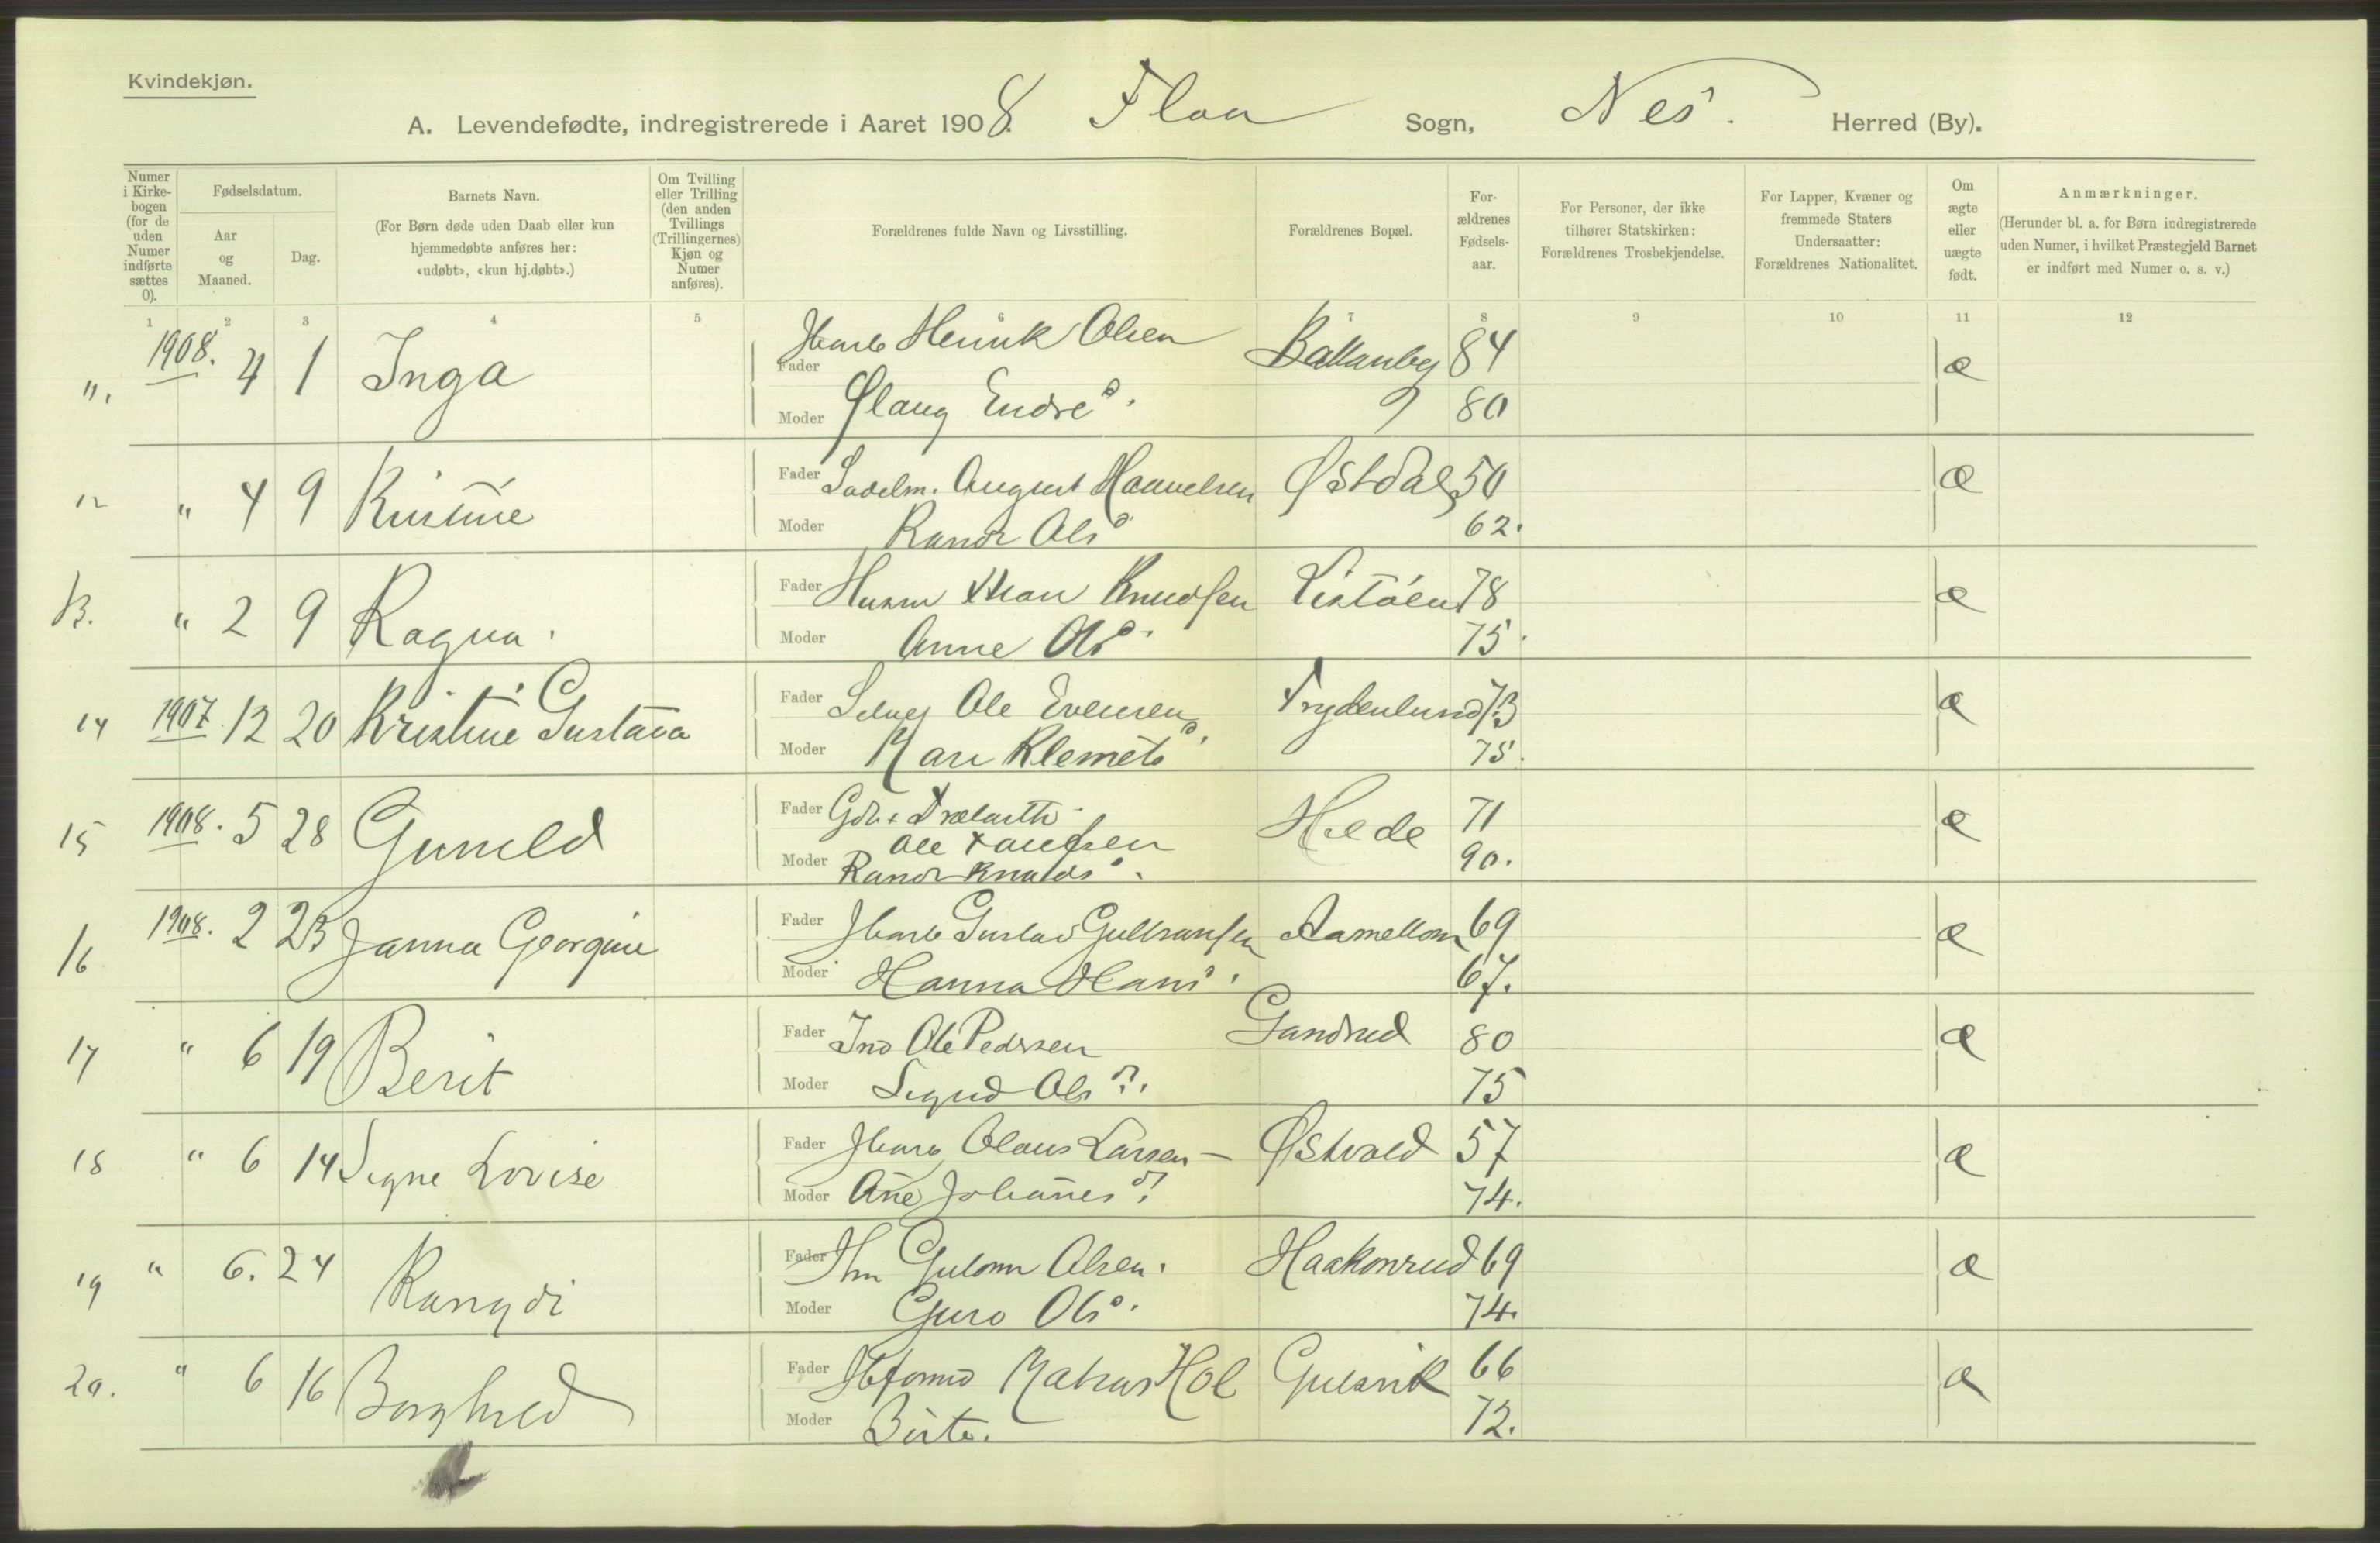 Kvindekjøn.
A. Levendefødte, indregistrerede i Aaret 1908. Flaa Sogn, Nes. Herred (By).
Numer i Kirke- bogen (for de uden Numer indførte sættes 0).
Fødselsdatum.
Aar og Maaned.
Dag.
Barnets Navn.
(For Børn døde uden Daab eller kun hjemmedøbte anføres her: «udøbt», «kun hj.døbt».)
Om Tvilling eller Trilling (den anden Tvillings (Trillingernes) Kjøn og Numer anføres).
Forældrenes fulde Navn og Livsstilling.
Forældrenes Bopæl.
For- ældrenes Fødsels- aar.
For Personer, der ikke tilhører Statskirken: Forældrenes Trosbekjendelse.
For Lapper, Kvæner og fremmede Staters Undersaatter: Forældrenes Nationalitet.
Om ægte eller uægte født.
Anmærkninger.
(Herunder bl. a. for Børn indregistrerede uden Numer, i hvilket Præstegjeld Barnet er indført med Numer o. s. v.)
1 2 3 4 5 6 7 8 9 10 11 12
11. 1908. 4 1 Inga Fader Henrik Olsen 84 æ
Moder Øлaug Endrsd. 80
12 " 4 9 Kristine Fader Sadelm. August Haavelsen Østdal 50 æ
Moder Randi Olsd 62.
13. " 2 9 Ragna. Fader Husm Knudsen 78 æ
Moder Anne Olsd. 75.
14 1907 12 20 Kristine Gustava Fader Selvej Ole Evensen Frydenlund 73 æ
Moder Kari Klemetsd. 75.
15 1908. 5 28 Gunild Fader Gbr. & Trælasth. Hilde 71 æ
Ole
Moder Randi Knutsd. 90.
16 1908. 2 23 Janna Georgine Fader Gustav Gulbransen 69 æ
Moder Hanna Hansd. 67.
17 " 6 19 Berit Fader Ind Ole Pedersen Gandrud 80 æ
Moder Sigrid Olsd. 75
18 " 6 14 Signe Lovise Fader Olaus Larsen – Østvold 57 æ
Moder Ane Johanesd. 74.
19 " 6. 24 Rangdi Fader Olsen. Haakonrud 69 æ
Moder Guro Olsd. 74.
20. " 6 16 Borghild Fader Hol Gulsvik 66 æ
Moder Birte. 72.